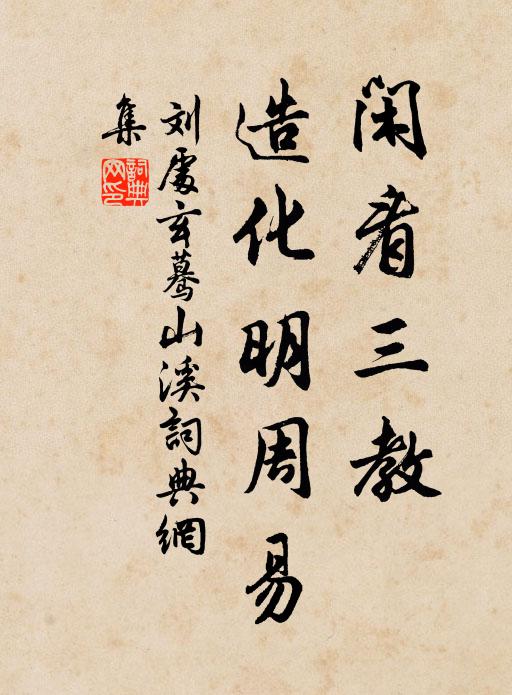 闲看三教
造化明周易
刘处玄蓦山溪詞典網
集
詞典
网印